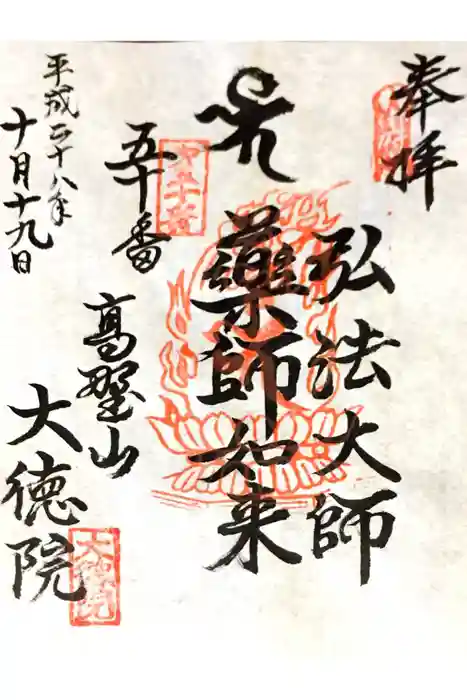 奉拝
弘法大師
薬師如来
五十番
高野山
大徳院
平成二十八年
十月十九日
第五十番
大徳院